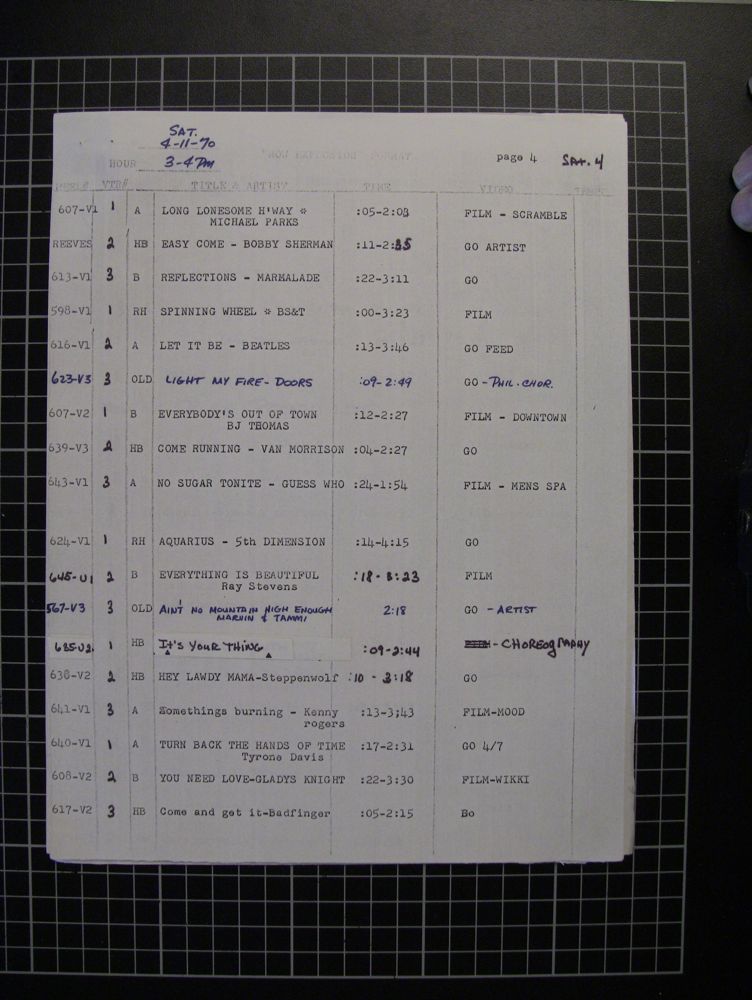 SAT.
4-11-70
HOUR 3-4 PM "NOW EXPLOSION" FORMAT page 4 SAT. 4
REEL# VTR# TITLE & ARTIST TIME VIDEO
607-V1 1 A LONG LONESOME H'WAY * :05-2:03 FILM - SCRAMBLE
MICHAEL PARKS
REEVES 2 HB EASY COME - BOBBY SHERMAN :11-2:35 GO ARTIST
613-V1 3 B REFLECTIONS - MARMALADE :22-3:11 GO
598-V1 1 RH SPINNING WHEEL * BS&T :00-3:23 FILM
616-V1 2 A LET IT BE - BEATLES :13-3:46 GO FEED
623-V3 3 OLD LIGHT MY FIRE - DOORS :09-2:49 GO - PHIL. CHOR.
607-V2 1 B EVERYBODY'S OUT OF TOWN :12-2:27 FILM - DOWNTOWN
BJ THOMAS
639-V3 2 HB COME RUNNING - VAN MORRISON :04-2:27 GO
643-V1 3 A NO SUGAR TONITE - GUESS WHO :24-1:54 FILM - MENS SPA
624-V1 1 RH AQUARIUS - 5th DIMENSION :14-4:15 GO
645-V1 2 B EVERYTHING IS BEAUTIFUL :18-3:23 FILM
Ray Stevens
567-V3 3 OLD AIN'T NO MOUNTAIN HIGH ENOUGH 2:18 GO - ARTIST
MARVIN & TAMMI
635-V2 1 HB IT'S YOUR THING :09-2:44 - CHOREOGRAPHY
638-V2 2 HB HEY LAWDY MAMA-Steppenwolf :10 - 3:18 GO
641-V1 3 A Somethings burning - Kenny :13-3;43 FILM-MOOD
rogers
640-V1 1 A TURN BACK THE HANDS OF TIME :17-2:31 GO 4/7
Tyrone Davis
608-V2 2 B YOU NEED LOVE-GLADYS KNIGHT :22-3:30 FILM-WIKKI
617-V2 3 HB Come and get it-Badfinger :05-2:15 Bo